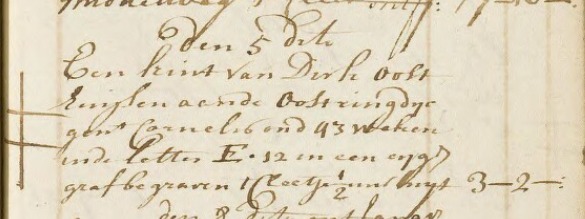 den 5 dito
Een kint van Dirk Oost
Huijsen aende Oostringdyc
gen^t Cornelis oud 93 weken
inde Letter E · 12 in een eyg
graf begraven 1 Cleetje ½ uur 3—2—:
den 8 dito ontfangen